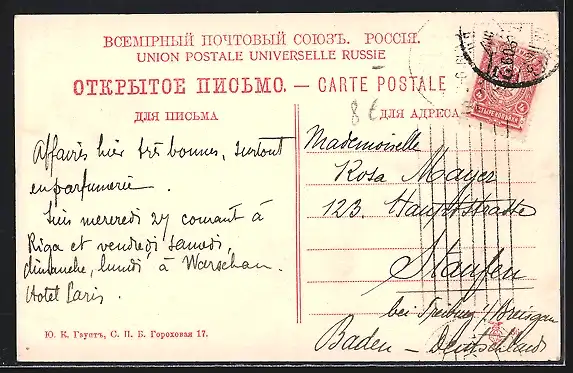 ВСЕМІРНЫЙ ПОЧТОВЫЙ СОЮЗЪ. РОССІЯ.
UNION POSTALE UNIVERSELLE RUSSIE
ОТКРЫТОЕ ПИСЬМО. — CARTE POSTALE
ДЛЯ ПИСЬМА
ДЛЯ АДРЕСА
8 €
Affaires hier très bonnes, surtout
en parfumerie.
Suis mercredi 27 courant à
Riga et vendredi samedi,
dimanche, lundi à Warschau.
Hotel Paris.
Mademoiselle
Rosa Mayer
123. Hauptstrasse
Staufen
bei Freiburg / Breisgau
Baden — Deutschland
Ю. К. Гаупъ, С. П. Б. Гороховая 17.